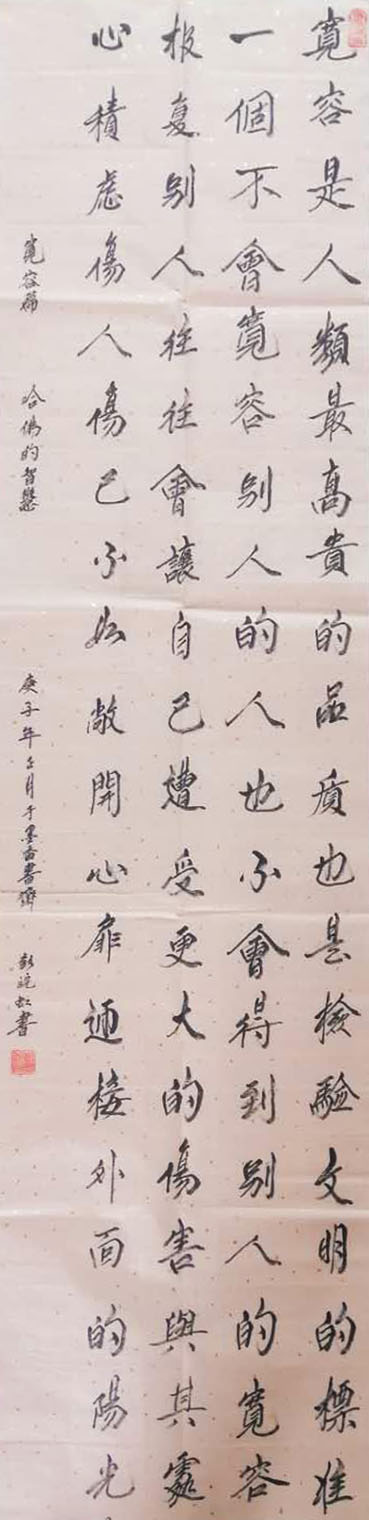 寬容是人類最高貴的品质也是檢驗文明的標准
一個不會寬容别人的人也不會得到别人的寬容
报复别人往往會讓自己遭受更大的傷害與其處
心積慮傷人傷己不如敞開心扉迎接外面的陽光
寬容篇 哈佛的智慧 庚子年 月于墨香書齋 彭 虹書